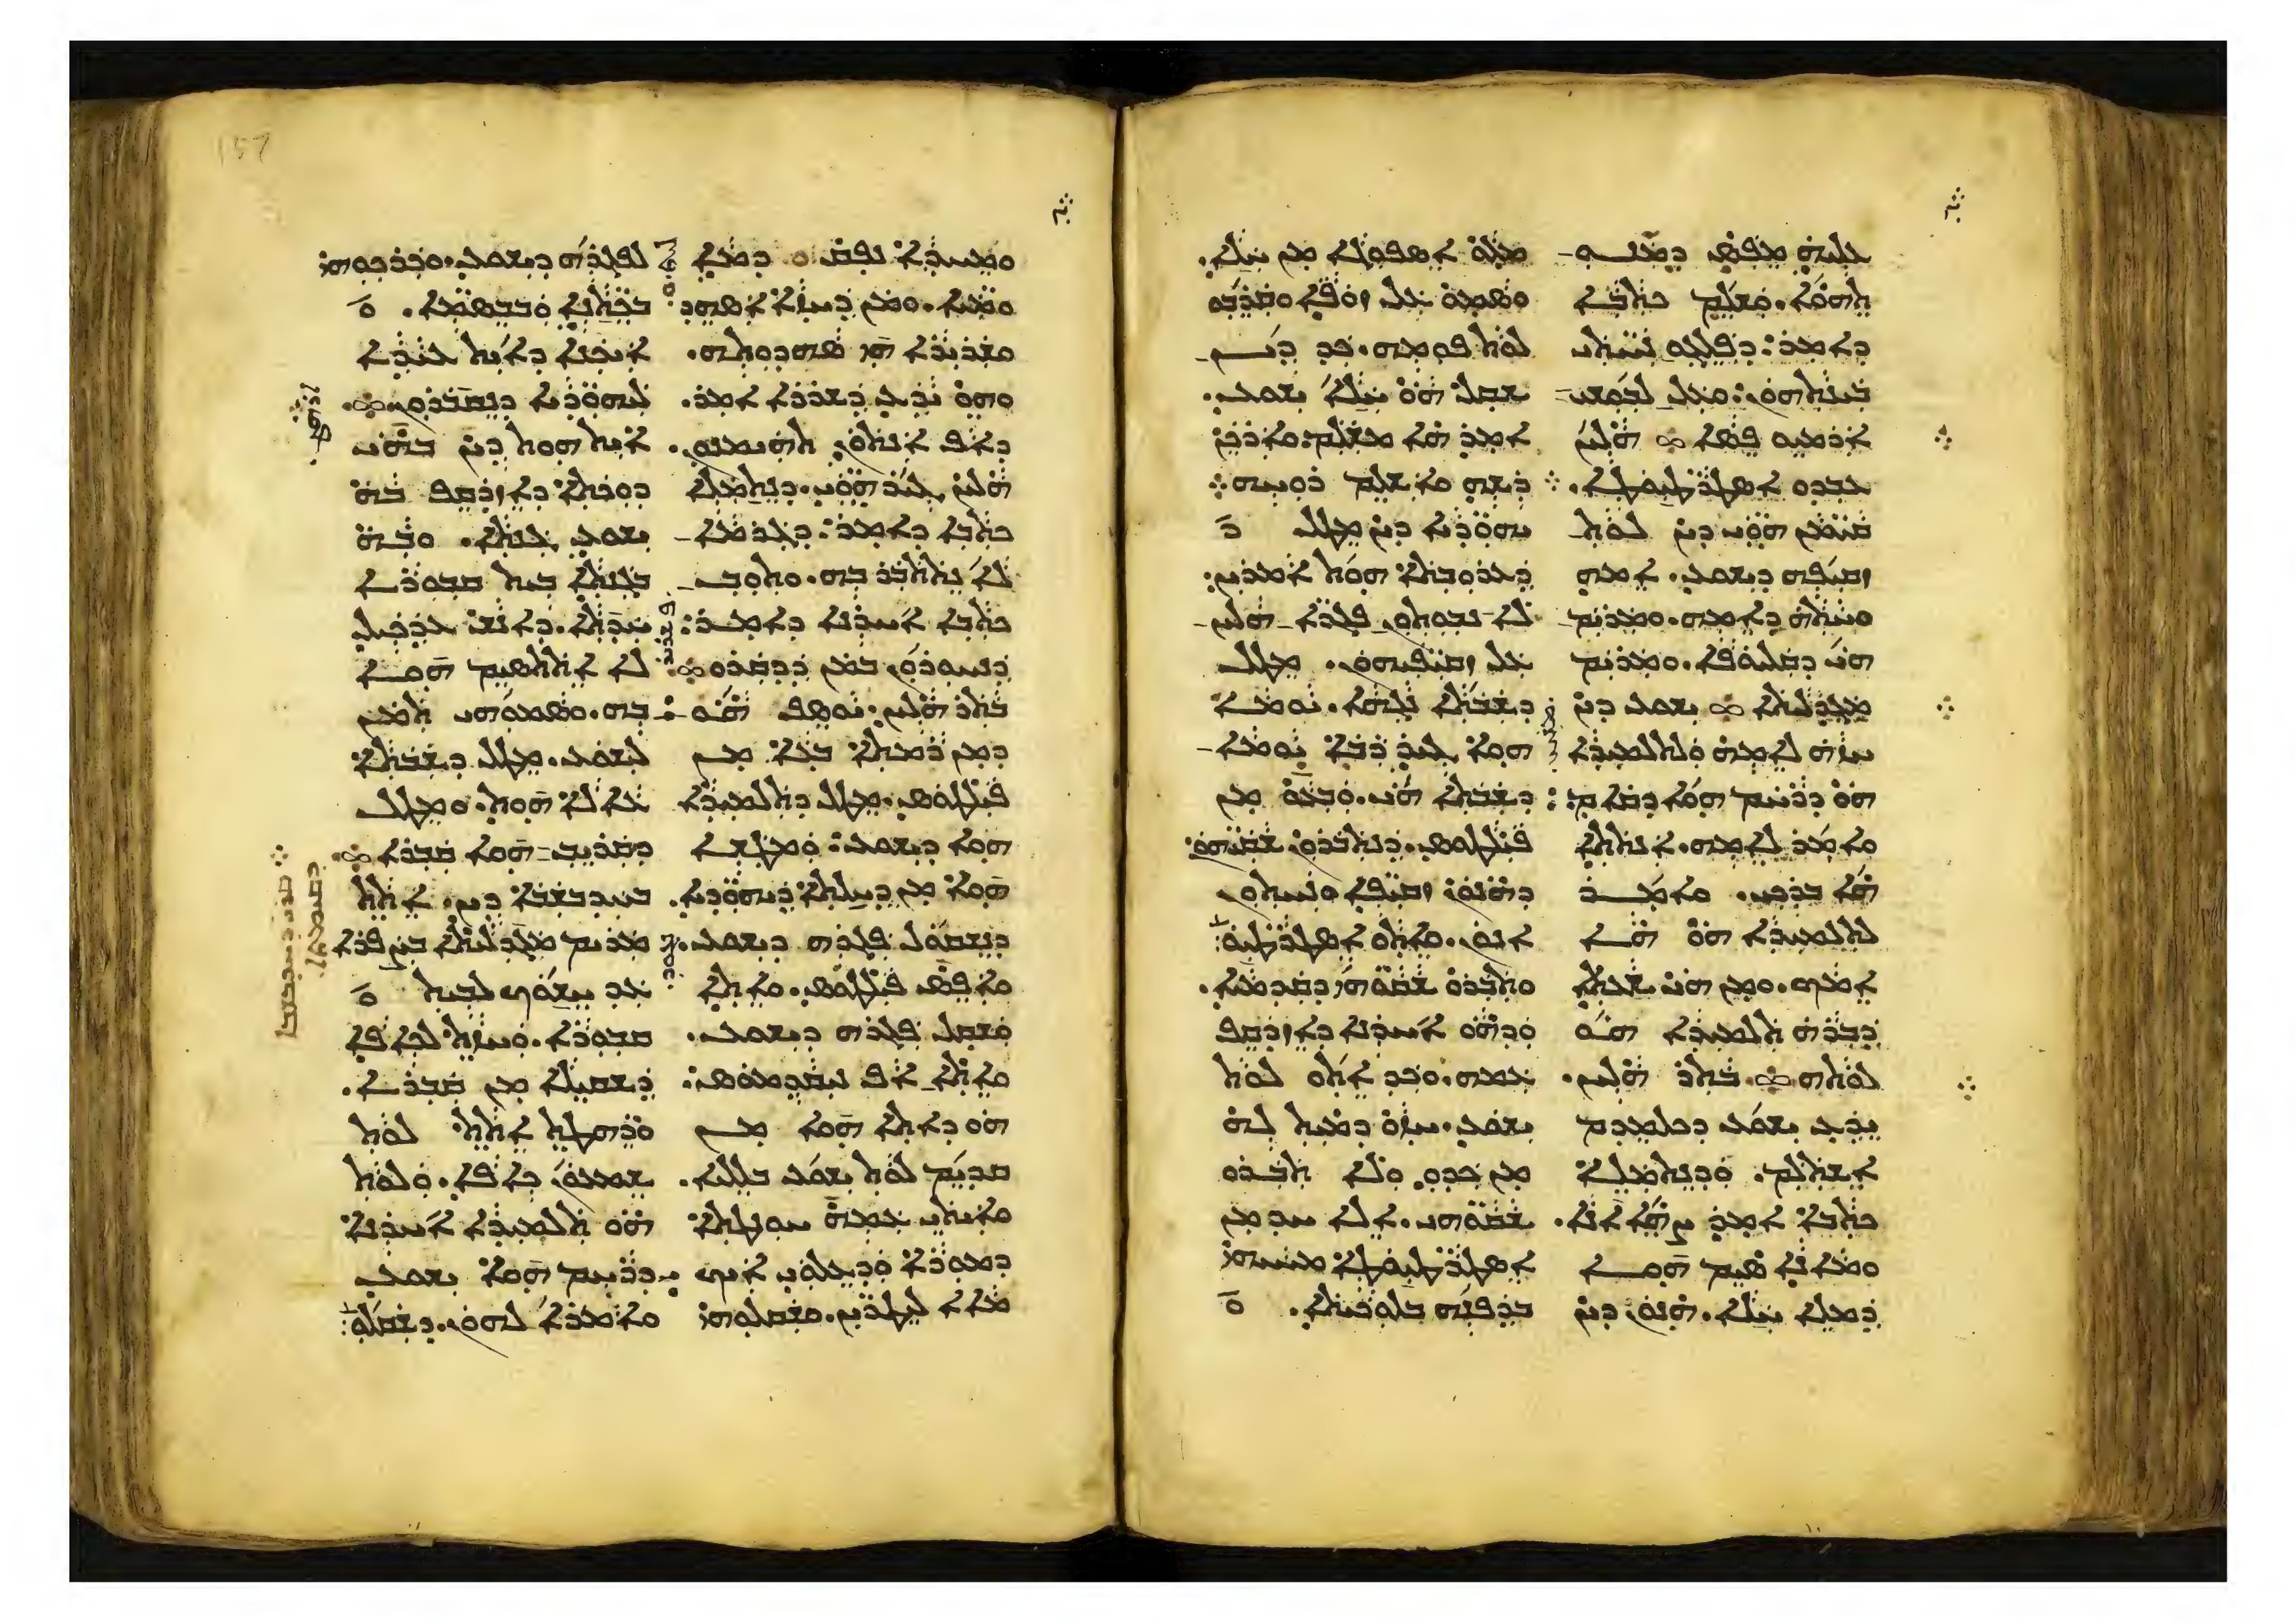 ܥܠܝܗ ܡܦܣ ܕܡܢܘ
ܬܗܘܐ. ܘܫܠܡ ܟܬܒܐ
ܕܐܡܪ: ܕܦܠܓܘ ܢܚܬܝ
ܒܝܢܬܗܘܢ: ܘܥܠ ܠܒܘܫܝ
ܐܪܡܝܘ ܦܣܐ ܀ ܗܠܝܢ
ܥܒܕܘ ܐܣܛܪܛܝܘܛܐ.
ܩܝܡܢ ܗܘܝ ܕܝܢ ܠܘܬ
ܙܩܝܦܗ ܕܝܫܘܥ. ܐܡܗ
ܘܚܬܗ ܕܐܡܗ. ܘܡܪܝܡ
ܗܝ ܕܩܠܝܘܦܐ. ܘܡܪܝܡ
ܡܓܕܠܝܬܐ ܀ ܝܫܘܥ ܕܝܢ
ܚܙܐ ܠܐܡܗ ܘܠܬܠܡܝܕܐ
ܗܘ ܕܪܚܡ ܗܘܐ ܕܩܐܡ:
ܘܐܡܪ ܠܐܡܗ. ܐܢܬܬܐ
ܗܐ ܒܪܟܝ. ܘܐܡܪ
ܠܬܠܡܝܕܐ ܗܘ ܗܐ
ܐܡܟ. ܘܡܢ ܗܝ ܫܥܬܐ
ܕܒܪܗ ܬܠܡܝܕܐ ܗܘ
ܠܘܬܗ ܀ ܒܬܪ ܗܠܝܢ.
ܝܕܥ ܝܫܘܥ ܕܟܠܡܕܡ
ܐܫܬܠܡ. ܘܕܢܬܡܠܐ
ܟܬܒܐ ܐܡܪ ܨܗܐ ܐܢܐ.
ܘܡܐܢܐ ܣܝܡ ܗܘܐ
ܕܡܠܐ ܚܠܐ. ܗܢܘܢ ܕܝܢ
ܡܠܘ ܐܣܦܘܓܐ ܡܢ ܚܠܐ.
ܘܣܡܘ ܥܠ ܙܘܦܐ ܘܩܪܒܘ
ܠܘܬ ܦܘܡܗ. ܟܕ ܕܝܢ
ܫܩܠ ܗܘ ܚܠܐ ܝܫܘܥ.
ܐܡܪ ܗܐ ܡܫܠܡ. ܘܐܪܟܢ
ܪܫܗ ܘܐܫܠܡ ܪܘܚܗ
ܝܗܘܕܝܐ ܕܝܢ ܡܛܠ
ܕܥܪܘܒܬܐ ܗܘܬ ܐܡܪܝܢ.
ܠܐ ܢܒܘܬܘܢ ܦܓܪܐ ܗܠܝܢ
ܥܠ ܙܩܝܦܝܗܘܢ. ܡܛܠ
ܕܫܒܬܐ ܢܓܗܐ. ܝܘܡܐ
ܗܘܐ ܓܝܪ ܪܒܐ ܝܘܡܐ
ܕܫܒܬܐ ܗܝ. ܘܒܥܘ ܡܢ
ܦܝܠܛܘܣ. ܕܢܬܒܪܘܢ ܫܩܝܗܘܢ
ܕܗܢܘܢ ܙܩܝܦܐ ܘܢܚܬܘܢ
ܐܢܘܢ. ܘܐܬܘ ܐܣܛܪܛܝܘܛܐ
ܘܬܒܪܘ ܫܩܘܗܝ ܕܩܕܡܝܐ.
ܘܕܗܘ ܐܚܪܢܐ ܕܐܙܕܩܦ
ܥܡܗ. ܘܟܕ ܐܬܘ ܠܘܬ
ܝܫܘܥ. ܚܙܘ ܕܡܝܬ ܠܗ
ܡܢ ܟܕܘ. ܘܠܐ ܬܒܪܘ
ܫܩܘܗܝ. ܐܠܐ ܚܕ ܡܢ
ܐܣܛܪܛܝܘܛܐ ܡܚܝܗܝ
ܒܕܦܢܗ ܒܠܘܟܝܬܐ.
ܘܡܚܕܐ ܢܦܩ ܕܡܐ
ܘܡܝܐ. ܘܡܢ ܕܚܙܐ ܐܣܗܕ
ܘܫܪܝܪܐ ܗܝ ܣܗܕܘܬܗ.
ܘܗܘ ܝܕܥ ܕܫܪܪܐ ܐܡܪ.
ܕܐܦ ܐܢܬܘܢ ܬܗܝܡܢܘܢ.
ܗܠܝܢ ܓܝܪ ܗܘܝ. ܕܢܬܡܠܐ
ܟܬܒܐ ܕܐܡܪ: ܕܓܪܡܐ
ܠܐ ܢܬܬܒܪ ܒܗ. ܘܬܘܒ
ܟܬܒܐ ܐܚܪܢܐ ܕܐܡܪ:
ܕܢܚܘܪܘܢ ܒܡܢ ܕܕܩܪܘ ܀
ܒܬܪ ܗܠܝܢ. ܝܘܣܦ ܗܘ
ܕܡܢ ܪܡܬܐ ܒܥܐ ܡܢ
ܦܝܠܛܘܣ. ܡܛܠ ܕܬܠܡܝܕܐ
ܗܘܐ ܕܝܫܘܥ: ܘܡܛܫܐ
ܗܘܐ ܡܢ ܕܚܠܬܐ ܕܝܗܘܕܝܐ.
ܕܢܫܩܘܠ ܦܓܪܗ ܕܝܫܘܥ.
ܘܐܦܣ ܦܝܠܛܘܣ. ܘܐܬܐ
ܘܫܩܠ ܦܓܪܗ ܕܝܫܘܥ.
ܘܐܬܐ ܐܦ ܢܝܩܕܡܘܣ:
ܗܘ ܕܐܬܐ ܗܘܐ ܡܢ
ܩܕܝܡ ܠܘܬ ܝܫܘܥ ܒܠܠܝܐ.
ܘܐܝܬܝ ܥܡܗ ܚܘܢܛܬܐ
ܕܡܘܪܐ ܘܕܥܠܘܝ ܐܝܟ
ܡܐܐ ܠܝܛܪܝܢ. ܘܫܩܠܘܗܝ
ܠܦܓܪܗ ܕܝܫܘܥ. ܘܟܪܟܘܗܝ
ܒܟܬܢܐ ܘܒܒܣܡܐ.
ܐܝܟܢܐ ܕܐܝܬ ܥܝܕܐ
ܠܝܗܘܕܝܐ ܕܢܩܒܪܘܢ ܀
ܐܝܬ ܗܘܬ ܕܝܢ ܒܗܝ
ܕܘܟܬܐ ܕܐܙܕܩܦ ܒܗ
ܝܫܘܥ ܓܢܬܐ. ܘܒܗ
ܒܓܢܬܐ ܒܝܬ ܩܒܘܪܐ
ܚܕܬܐ. ܕܐܢܫ ܥܕܟܝܠ
ܠܐ ܐܬܬܣܝܡ ܗܘܐ
ܒܗ. ܘܣܡܘܗܝ ܬܡܢ
ܠܝܫܘܥ. ܡܛܠ ܕܫܒܬܐ
ܥܐܠܐ ܗܘܬ. ܘܡܛܠ
ܕܩܪܝܒ ܗܘܐ ܩܒܪܐ ܀
ܒܚܕܒܫܒܐ ܕܝܢ. ܐܬܬ
ܡܪܝܡ ܡܓܕܠܝܬܐ ܒܨܦܪܐ
ܥܕ ܚܫܘܟ ܠܒܝܬ
ܩܒܘܪܐ. ܘܚܙܬ ܠܟܐܦܐ
ܕܫܩܝܠܐ ܡܢ ܩܒܪܐ.
ܘܪܗܛܬ ܐܬܬ ܠܘܬ
ܫܡܥܘܢ ܟܐܦܐ. ܘܠܘܬ
ܗܘ ܬܠܡܝܕܐ ܐܚܪܢܐ
ܕܪܚܡ ܗܘܐ ܝܫܘܥ
ܘܐܡܪܐ ܠܗܘܢ. ܕܫܩܠܘ
157